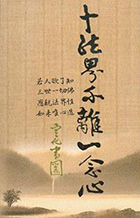 十法界不離一念心
若人欲了知
三世一切佛
應觀法界性